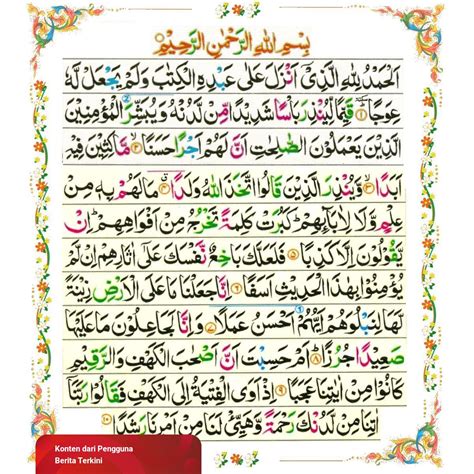 بِسْمِ اللهِ الرَّحْمٰنِ الرَّحِيْمِ
اَلْحَمْدُ لِلّٰهِ الَّذِيْٓ اَنْزَلَ عَلٰى عَبْدِهِ الْكِتٰبَ وَلَمْ يَجْعَلْ لَّهٗ
عِوَجًا ۜ ١ قَيِّمًا لِّيُنْذِرَ بَأْسًا شَدِيْدًا مِّنْ لَّدُنْهُ وَيُبَشِّرَ الْمُؤْمِنِيْنَ
الَّذِيْنَ يَعْمَلُوْنَ الصّٰلِحٰتِ اَنَّ لَهُمْ اَجْرًا حَسَنًا ٢ مَّاكِثِيْنَ فِيْهِ
اَبَدًا ٣ وَّيُنْذِرَ الَّذِيْنَ قَالُوا اتَّخَذَ اللهُ وَلَدًا ٤ مَا لَهُمْ بِهٖ مِنْ
عِلْمٍ وَّلَا لِاٰبَاۤئِهِمْ كَبُرَتْ كَلِمَةً تَخْرُجُ مِنْ اَفْوَاهِهِمْ اِنْ
يَّقُوْلُوْنَ اِلَّا كَذِبًا ٥ فَلَعَلَّكَ بَاخِعٌ نَّفْسَكَ عَلٰٓى اٰثَارِهِمْ اِنْ لَّمْ
يُؤْمِنُوْا بِهٰذَا الْحَدِيْثِ اَسَفًا ٦ اِنَّا جَعَلْنَا مَا عَلَى الْاَرْضِ زِيْنَةً
لَّهَا لِنَبْلُوَهُمْ اَيُّهُمْ اَحْسَنُ عَمَلًا ٧ وَاِنَّا لَجَاعِلُوْنَ مَا عَلَيْهَا
صَعِيْدًا جُرُزًا ٨ اَمْ حَسِبْتَ اَنَّ اَصْحٰبَ الْكَهْفِ وَالرَّقِيْمِ
كَانُوْا مِنْ اٰيٰتِنَا عَجَبًا ٩ اِذْ اَوَى الْفِتْيَةُ اِلَى الْكَهْفِ فَقَالُوْا رَبَّنَآ
اٰتِنَا مِنْ لَّدُنْكَ رَحْمَةً وَّهَيِّئْ لَنَا مِنْ اَمْرِنَا رَشَدًا ١٠
Konten dari Pengguna
Berita Terkini